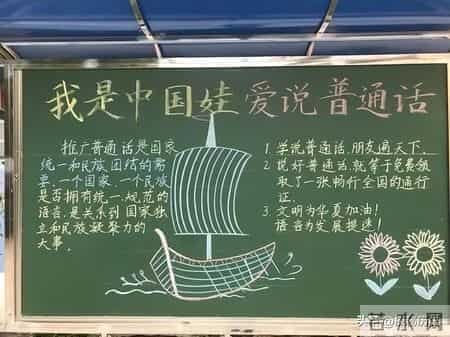 我是中国娃 爱说普通话
推广普通话是国家
统一和民族团结的需
要,一个国家、一个民族
是否拥有统一、规范的
语言,是关系到国家独
立和民族凝聚力的
大事。
1. 学说普通话,朋友遍天下。
2. 说好普通话,就等于免费领
取了一张畅行全国的通行
证。
3. 文明为华夏加油!
语言为发展提速!